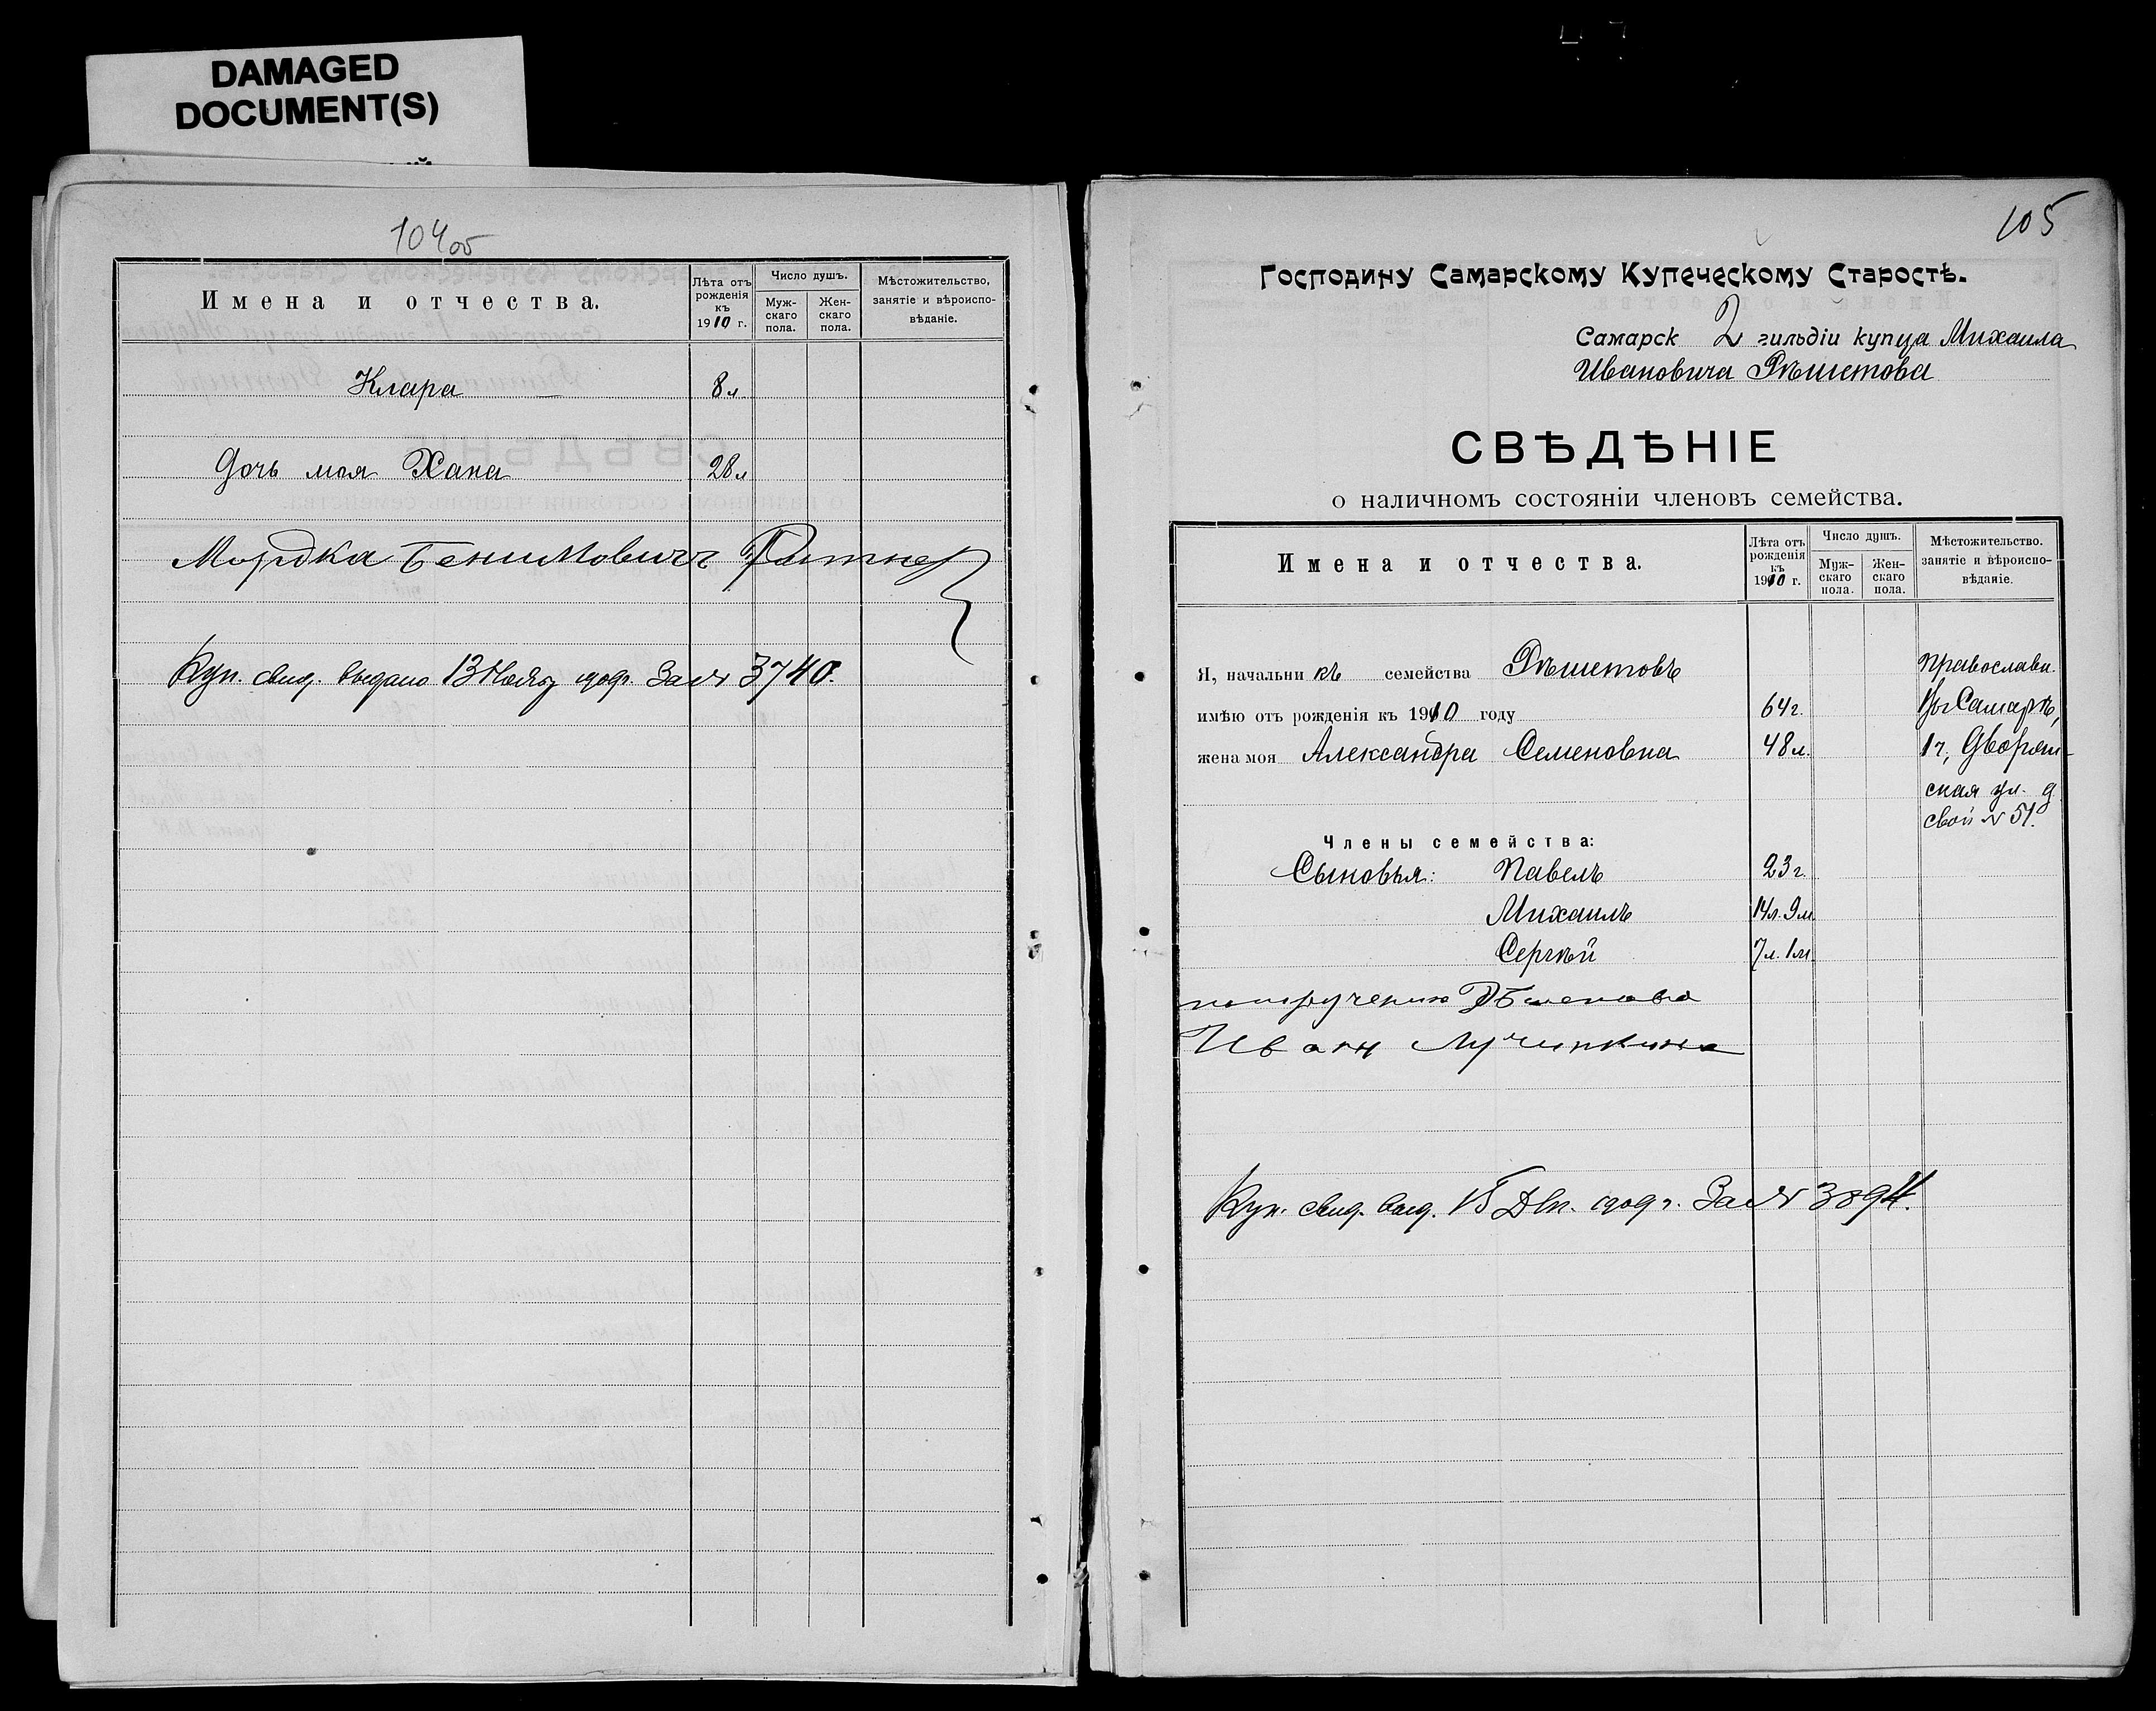 DAMAGED
DOCUMENT(S)
104об
Имена и отчества.
Лѣта отъ рожденія къ 1910 г.
Число душъ.
Муж-скаго пола.
Жен-скаго пола.
Мѣстожительство, занятіе и вѣроиспо-вѣданіе.
Клара 8 л
Дочь моя Хана 28 л
Мордка Бениовичъ Ратнер
Куп. свид. выдано 13 Ноябр 1909г. За № 3740.
105
Господину Самарскому Купеческому Старостѣ.
Самарск 2 гильдіи купца Михаила
Ивановича Рѣшетова
СВѢДѢНІЕ
о наличномъ состояніи членовъ семейства.
Имена и отчества.
Лѣта отъ рожденія къ 1910 г.
Число душъ.
Муж-скаго пола.
Жен-скаго пола.
Мѣстожительство. занятіе и вѣроиспо-вѣданіе.
Я, начальникъ семейства Рѣшетовъ православн.
имѣю отъ рожденія къ 1910 году 64 г. Въ Самарѣ,
жена моя Александра Семеновна 48 л. 1 ч, Дворян-
ская ул. д
свой № 51.
Члены семейства:
Сыновья: Павелъ 23 г.
Михаилъ 14 л. 9 м
Сергѣй 7 л. 1 м.
Рѣшетова
Иванъ
Куп. свид. выд. 15 Дек. 1909 г. За № 3894.